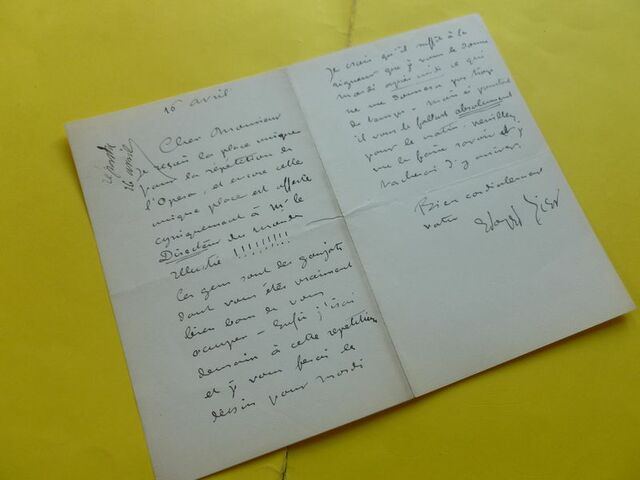 16 avril
répondu
16 avril
Cher Monsieur
Je reçois la place unique
pour la répétition de
l'Opera, et encore cette
unique place est offerte
cyniquement à Mr le
Directeur du monde
Illustré !!!!!!!!!
Ces gens sont des goujats
dont vous êtes vraiment
bien bon de vous
occuper - Enfin j'irai
demain à cette repetition
et je vous ferai le
dessin pour mardi
Je crois qu'il suffit à la
rigueur que je vous le donne
mardi après midi ce qui
ne me donnera pas trop
de temps - Mais si pourtant
il vous le fallait absolument
pour le matin, veuillez
me le faire savoir et je
tacherai d'y arriver.
Bien cordialement
votre